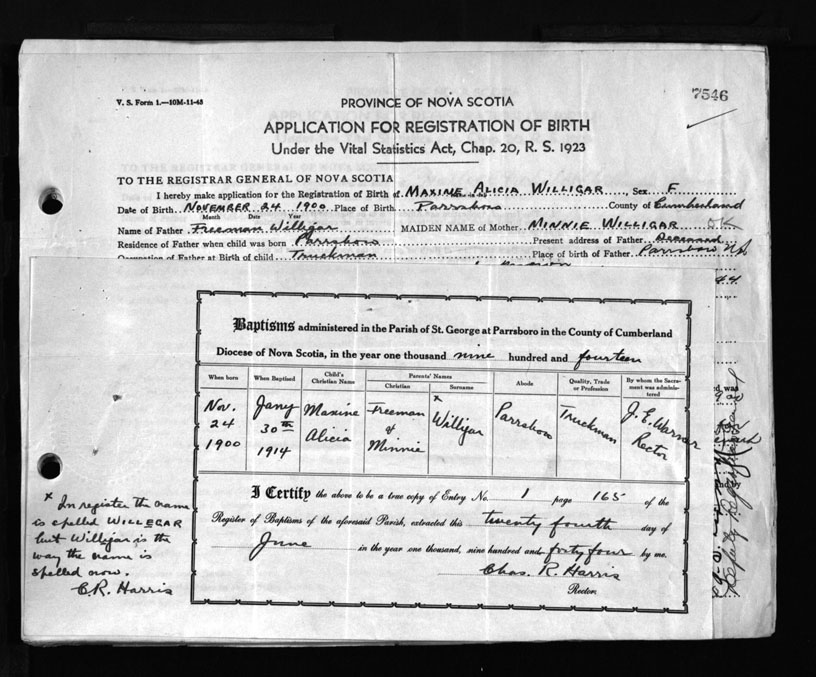 7546
V. S. Form 1.—10M-11-43
PROVINCE OF NOVA SCOTIA
APPLICATION FOR REGISTRATION OF BIRTH
Under the Vital Statistics Act, Chap. 20, R. S. 1923
TO THE REGISTRAR GENERAL OF NOVA SCOTIA
I hereby make application for the Registration of Birth of MAXINE ALICIA WILLIGAR, Sex F
Date of Birth NOVEMBER 24 1900 Place of Birth Parrsboro County of Cumberland
Month Date Year
Name of Father Freeman Willigar MAIDEN NAME of Mother MINNIE WILLIGAR OK
Residence of Father when child was born Parrsboro Present address of Father Deceased
Occupation of Father at Birth of child Truckman Place of birth of Father Parrsboro N.S.
44
Baptisms administered in the Parish of St. George at Parrsboro in the County of Cumberland
Diocese of Nova Scotia, in the year one thousand nine hundred and fourteen
When born When Baptised Child's Christian Name Parents' Names Christian Surname Abode Quality, Trade or Profession By whom the Sacrament was administered
Nov. 24 1900 Jany 30th 1914 Maxine Alicia Freeman & Minnie x Willigar Parrsboro Truckman J. E. Warner Rector
I Certify the above to be a true copy of Entry No. 1 page 165 of the
Register of Baptisms of the aforesaid Parish, extracted this twenty fourth day of
June in the year one thousand, nine hundred and forty four by me.
Chas. R. Harris
Rector.
x In register the name
is spelled WILLEGAR
but Willigar is the
way the name is
spelled now.
C.R. Harris